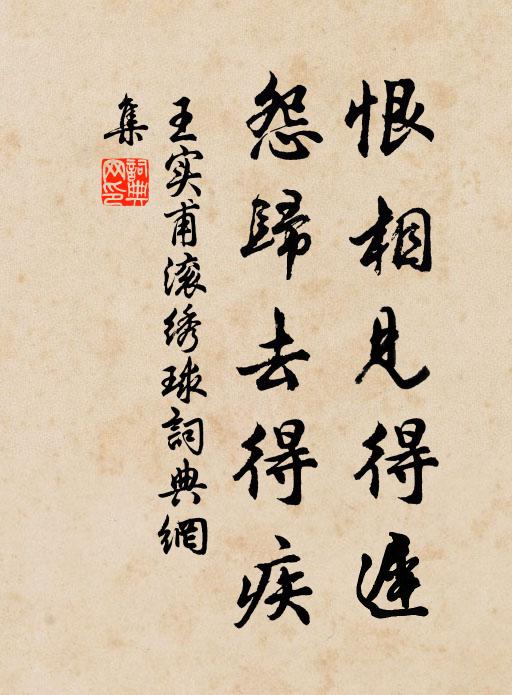 恨相見得遲
怨歸去得疾
王实甫滚绣球詞典網
集
詞典网印